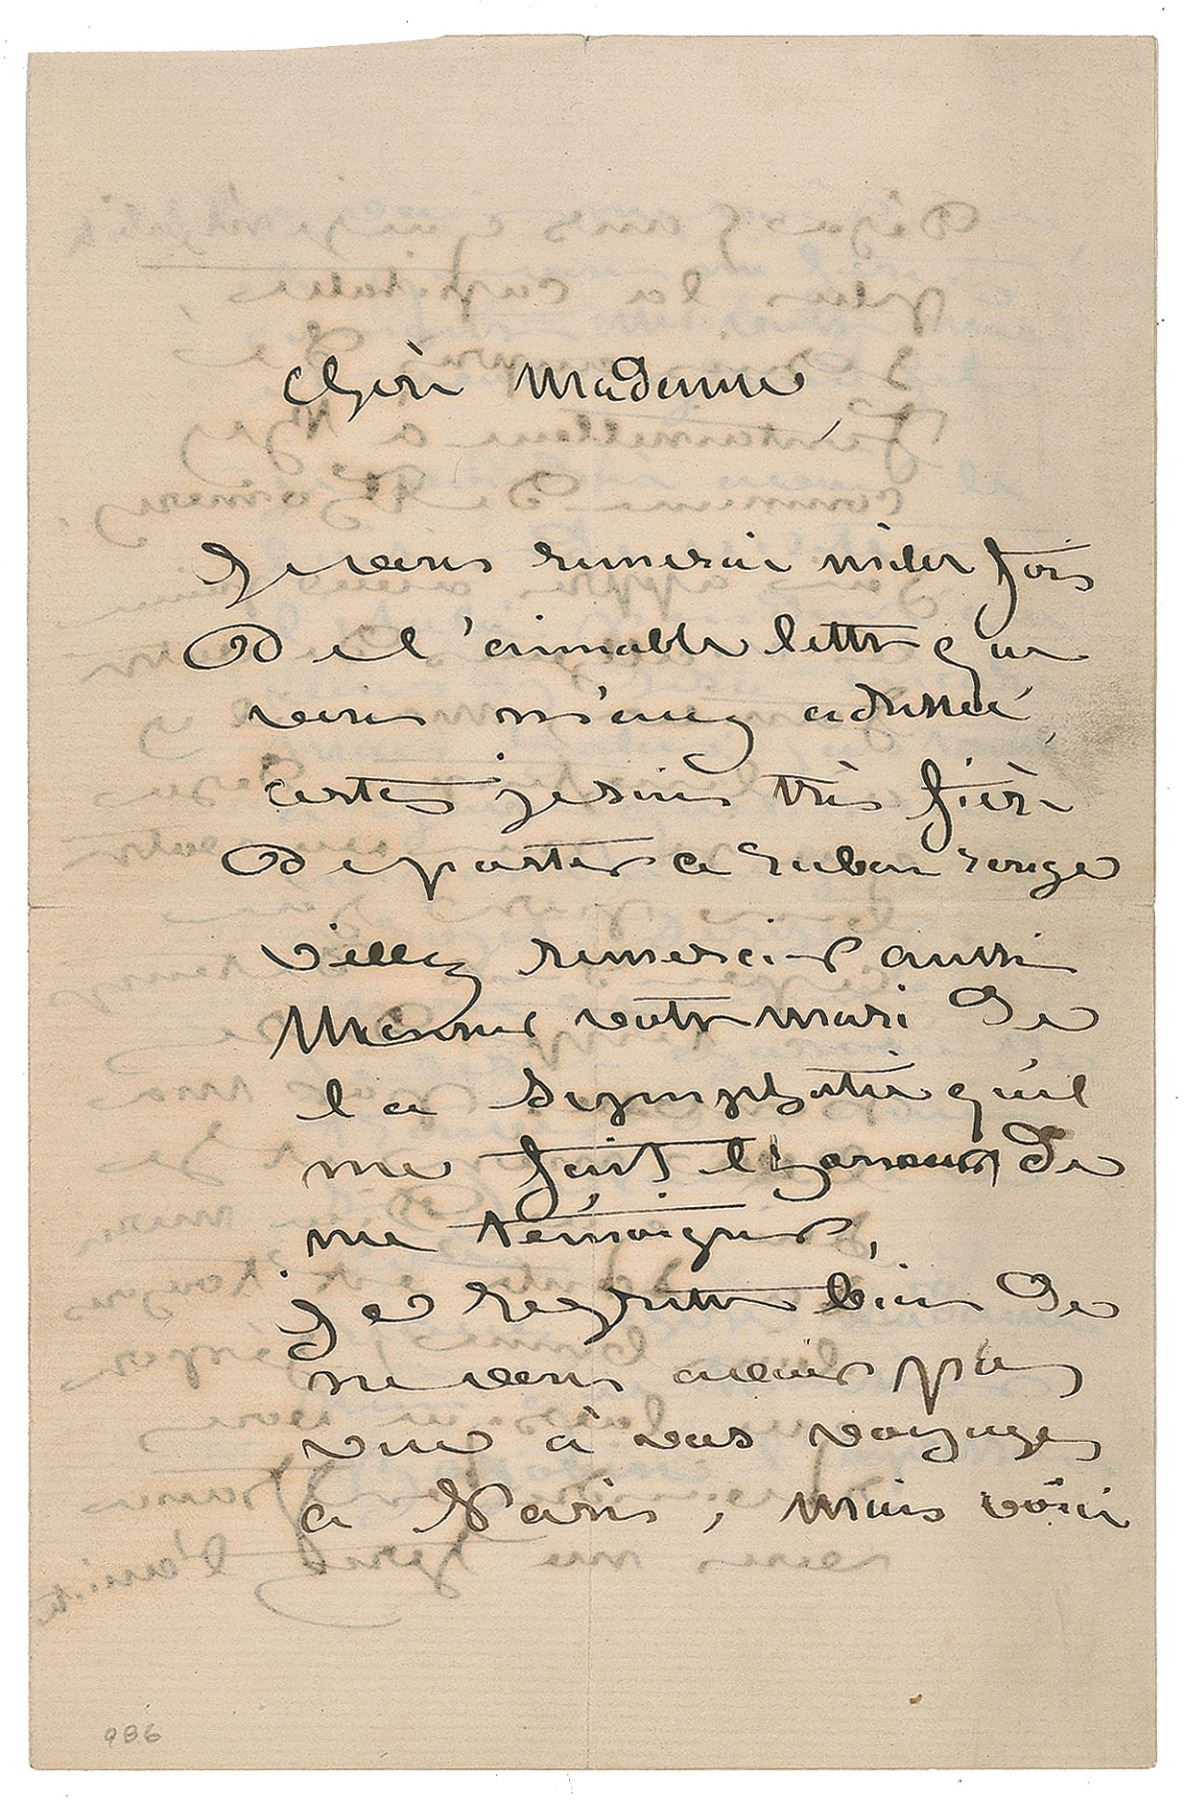 chère Madame,
Je vous remercie milles fois
de l'aimable lettre que
vous m'avez adressée,
certes je suis très fière
de porter ce ruban rouge
veillez remercier aussi
Monsieur votre mari de
la symphatie qu'il
me fait l'honneur de
me témoigner,
je regrette bien de
ne vous avoir pas
vue à vos voyages
a Paris, mais voici
986